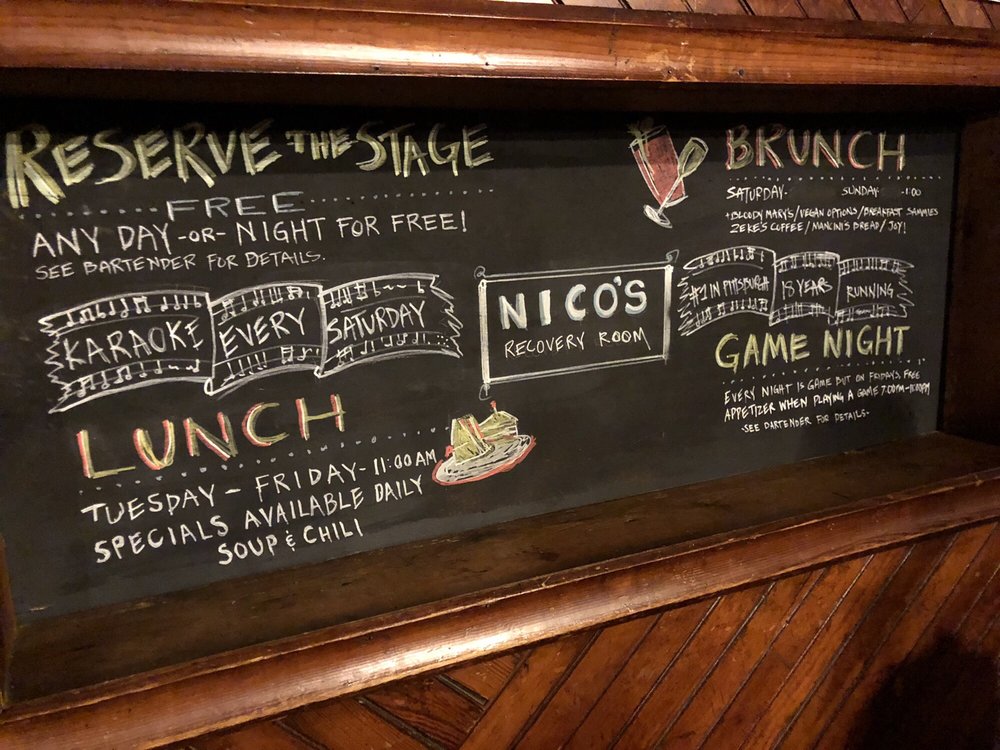 RESERVE THE STAGE
FREE
ANY DAY -OR- NIGHT FOR FREE!
SEE BARTENDER FOR DETAILS.
KARAOKE EVERY SATURDAY
LUNCH
TUESDAY - FRIDAY - 11:00 AM
SPECIALS AVAILABLE DAILY
SOUP & CHILI
NICO'S
RECOVERY ROOM
BRUNCH
SATURDAY- SUNDAY- -1:00
+BLOODY MARY'S/VEGAN OPTIONS/BREAKFAST SAMMIES
ZEKE'S COFFEE/MANCINI'S BREAD/JOY!
#1 IN PITTSBURGH 18 YEARS RUNNING
GAME NIGHT
EVERY NIGHT IS GAME BUT ON FRIDAYS, FREE
APPETIZER WHEN PLAYING A GAME 7:00PM-
-SEE BARTENDER FOR DETAILS-